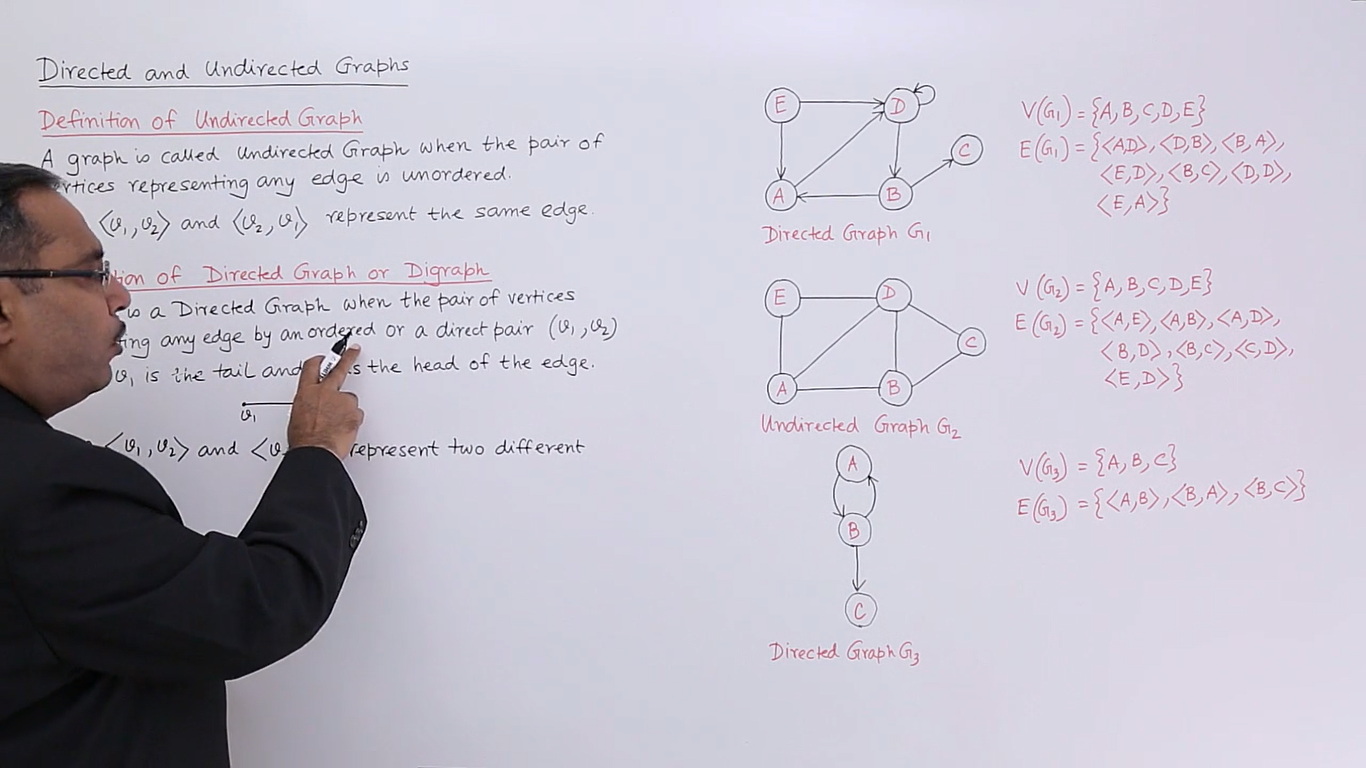 Directed and Undirected Graphs
Definition of Undirected Graph
A graph is called Undirected Graph when the pair of
vertices representing any edge is unordered.
⟨v₁, v₂⟩ and ⟨v₂, v₁⟩ represent the same edge.
of Directed Graph or Digraph
is a Directed Graph when the pair of vertices
any edge by an ordered or a direct pair (v₁, v₂)
v₁ is the tail and the head of the edge.
v₁
⟨v₁, v₂⟩ and represent two different
E
D
C
A
B
Directed Graph G₁
V(G₁) = {A, B, C, D, E}
E(G₁) = {⟨A,D⟩, ⟨D,B⟩, ⟨B, A⟩,
⟨E,D⟩, ⟨B,C⟩, ⟨D,D⟩,
⟨E,A⟩}
E
D
C
A
B
Undirected Graph G₂
V(G₂) = {A, B, C, D, E}
E(G₂) = {⟨A,E⟩, ⟨A,B⟩, ⟨A,D⟩,
⟨B,D⟩, ⟨B,C⟩, ⟨C,D⟩,
⟨E,D⟩}
A
B
C
Directed Graph G₃
V(G₃) = {A, B, C}
E(G₃) = {⟨A,B⟩, ⟨B,A⟩, ⟨B,C⟩}